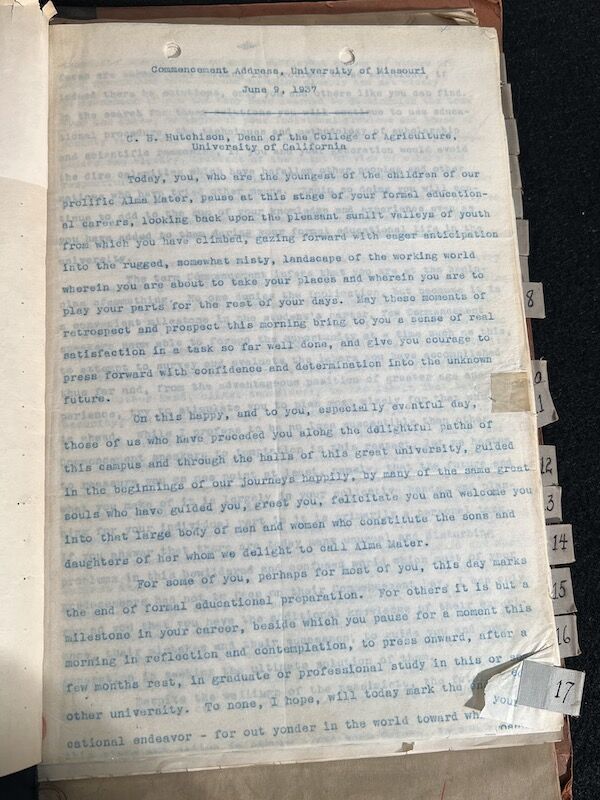 Commencement Address, University of Missouri
June 9, 1937
C. B. Hutchison, Dean of the College of Agriculture,
University of California
Today, you, who are the youngest of the children of our
prolific Alma Mater, pause at this stage of your formal education-
al careers, looking back upon the pleasant sunlit valleys of youth
from which you have climbed, gazing forward with eager anticipation
into the rugged, somewhat misty, landscape of the working world
wherein you are about to take your places and wherein you are to
play your parts for the rest of your days. May these moments of
retrospect and prospect this morning bring to you a sense of real
satisfaction in a task so far well done, and give you courage to
press forward with confidence and determination into the unknown
future.
On this happy, and to you, especially eventful day,
those of us who have preceded you along the delightful paths of
this campus and through the halls of this great university, guided
in the beginnings of our journeys happily, by many of the same great
souls who have guided you, greet you, felicitate you and welcome you
into that large body of men and women who constitute the sons and
daughters of her whom we delight to call Alma Mater.
For some of you, perhaps for most of you, this day marks
the end of formal educational preparation. For others it is but a
milestone in your career, beside which you pause for a moment this
morning in reflection and contemplation, to press onward, after a
few months rest, in graduate or professional study in this or
other university. To none, I hope, will today mark the
cational endeavor - for out yonder in the world toward
8
1
12
3
14
15
16
17